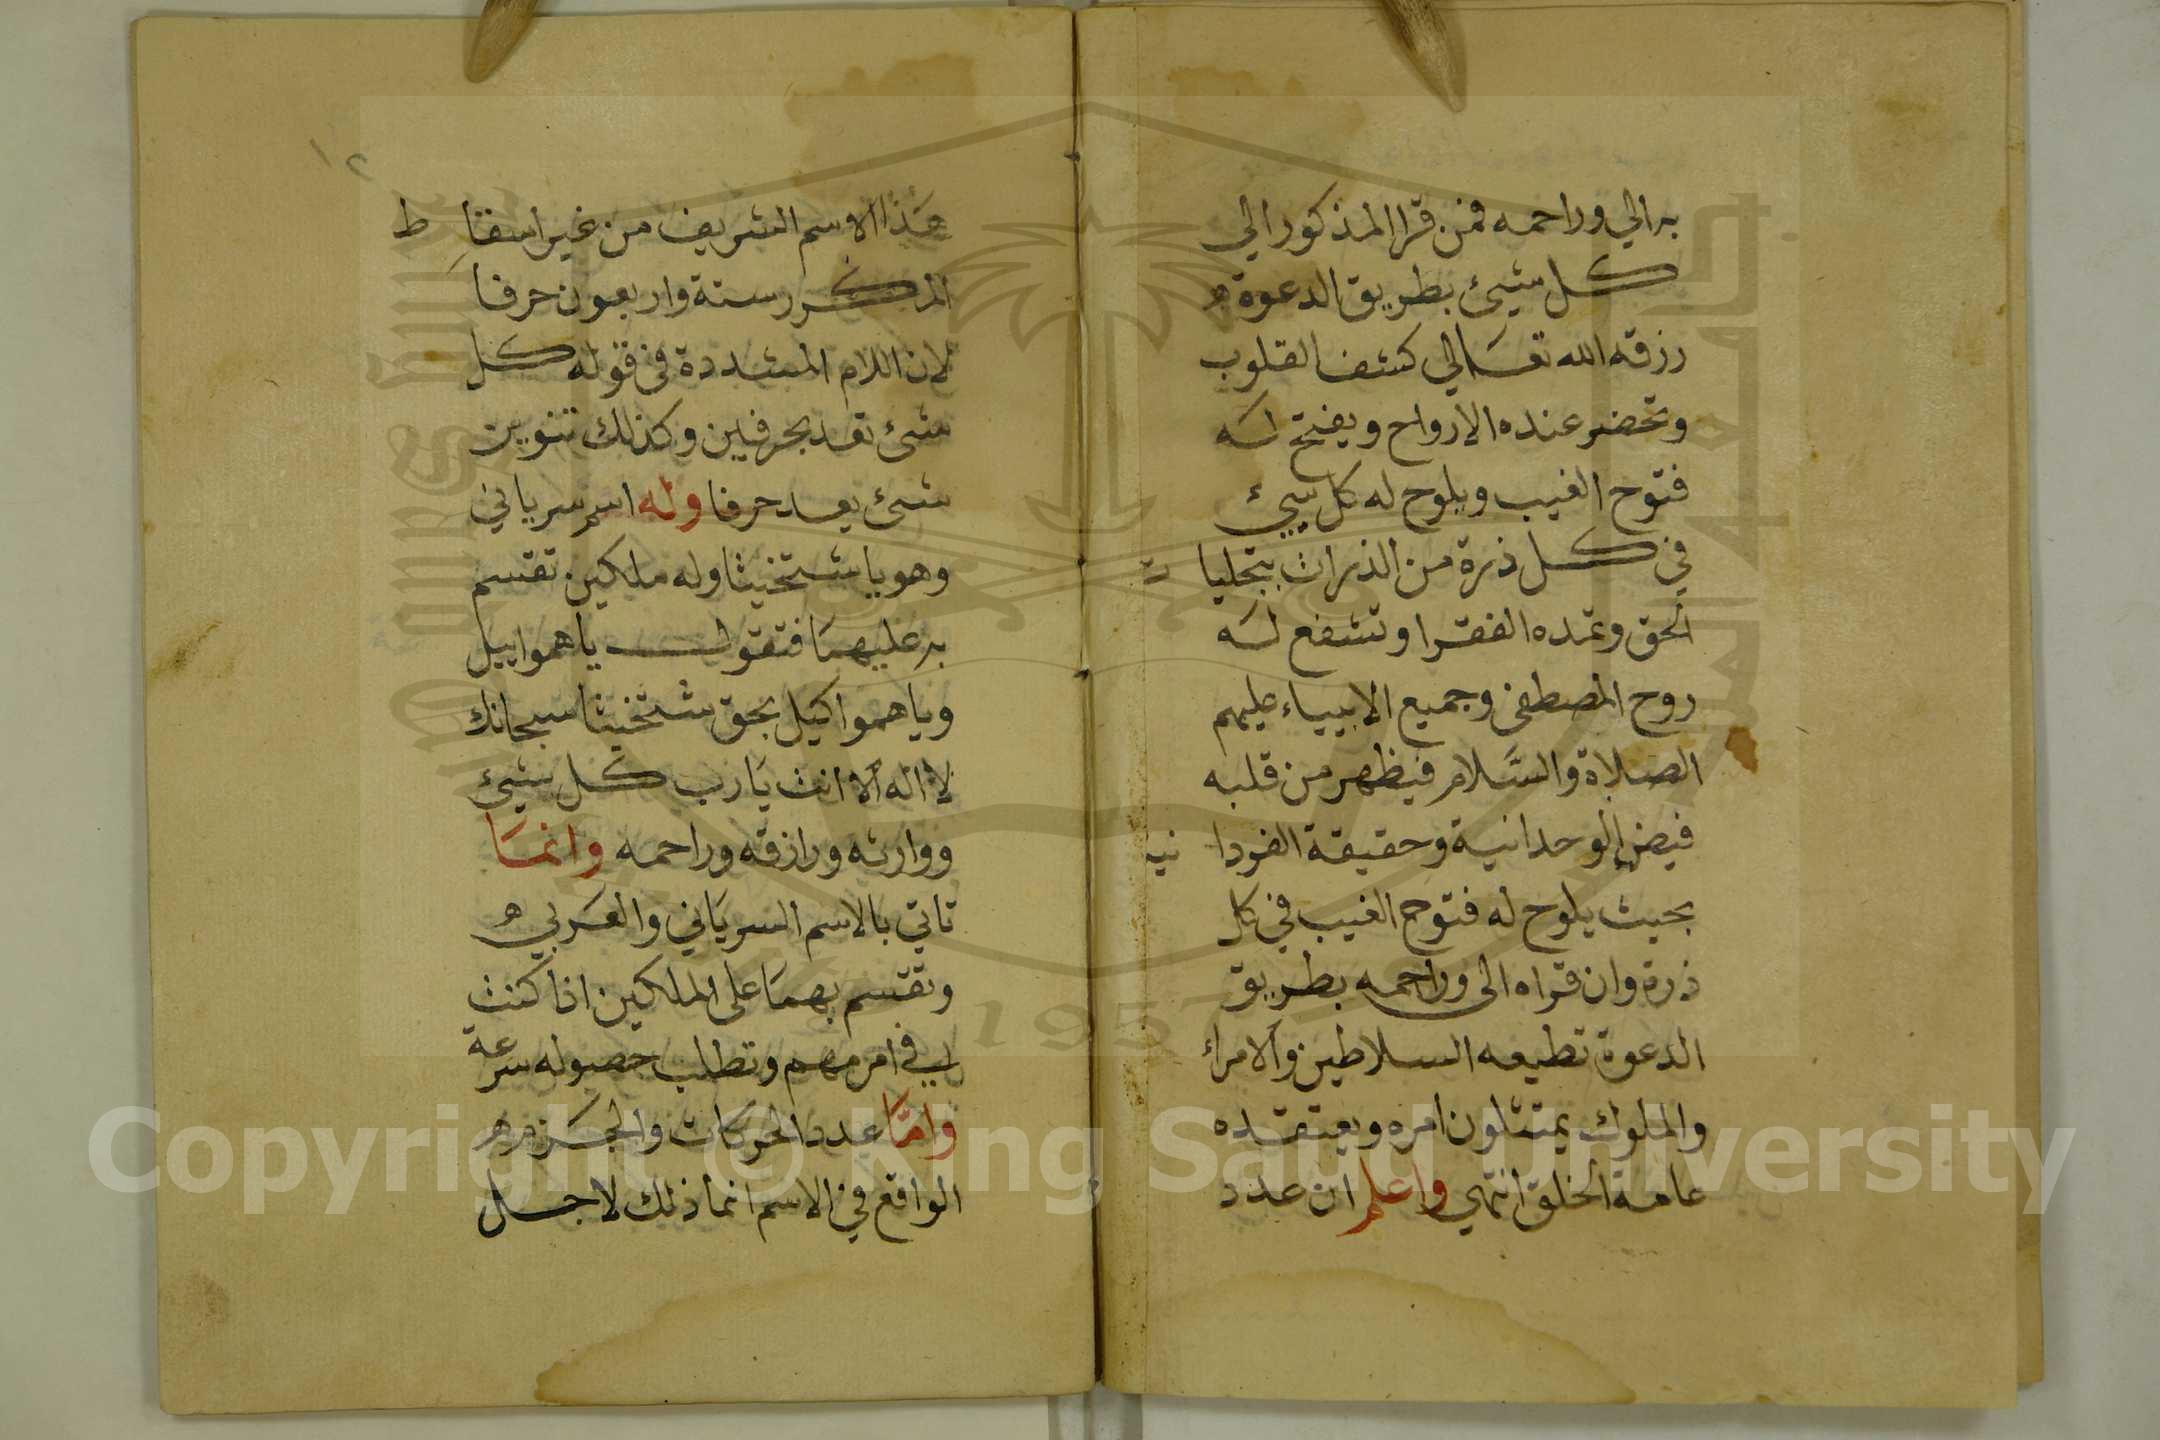 به الي وراحمه فمن قرا المذكور الي
كل شيئ بطريق الدعوة م
رزقه الله تعالي كشف القلوب
وتحضر عنده الارواح ويفتح له
فتوح الغيب ويلوح له كل شيئ
في كل ذرة من الذرات بتجليات
الحق وتمده الفقرا وتشفع له
روح المصطفى وجميع الانبياء عليهم
الصلاة والسلام فيظهر من قلبه
فيض الوحدانية وحقيقة الفردانيه
بحيث يلوح له فتوح الغيب في كل
ذرة وان قراه الى وراحمه بطريق
الدعوة تطيعه السلاطين والامراء
والملوك يمتثلون امره ويعتقده
عامة الخلق انتهي واعلم ان عدد
١٢
هذا الاسم الشريف من غير اسقاط
المكرر ستة واربعون حرفا
لان اللام المشددة في قوله كل
شئ تعد بحرفين وكذلك تنوين
شئ يعد حرفا وله اسم سرياني
وهو يا شتخيثا وله ملكين تقسم
به عليهما فتقول يا هموابيل
ويا همواكيل بحق شتخيثا سبحانك
لا اله الا انت يا رب كل شيئ
ووارثه ورازقه وراحمه وانما
تاتي بالاسم السرياني والعربي ه
وتقسم بهما على الملكين اذا كنت
في امر مهم وتطلب حصوله سرعة
واما عدد الحركات والجزم
الواقع في الاسم انما ذلك لاجل
Copyright © King Saud University
1957